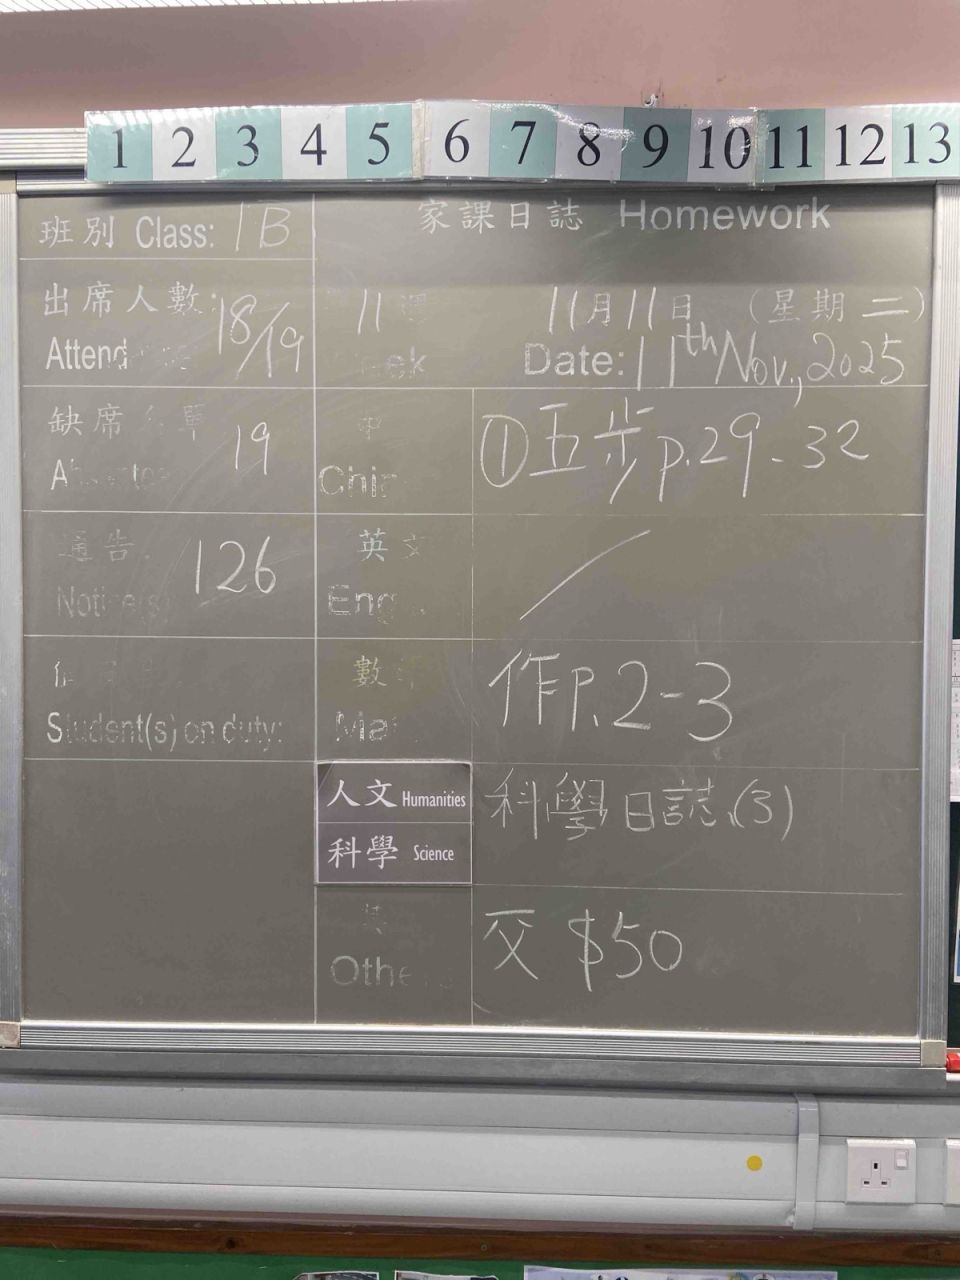 1 2 3 4 5 6 7 8 9 10 11 12 13
班別 Class: 1B
家課日誌 Homework
出席人數: 18/19
Attend
11 週
eek
11月11日 (星期二)
Date: 11th Nov., 2025
缺席 單
A
19
中
Chin
①五步 p.29-32
通告
Notice(s)
126
英文
Eng
/
Student(s) on duty:
數
Ma
作P.2-3
人文 Humanities
科學 Science
科學日誌(3)
其
Othe
交 $50